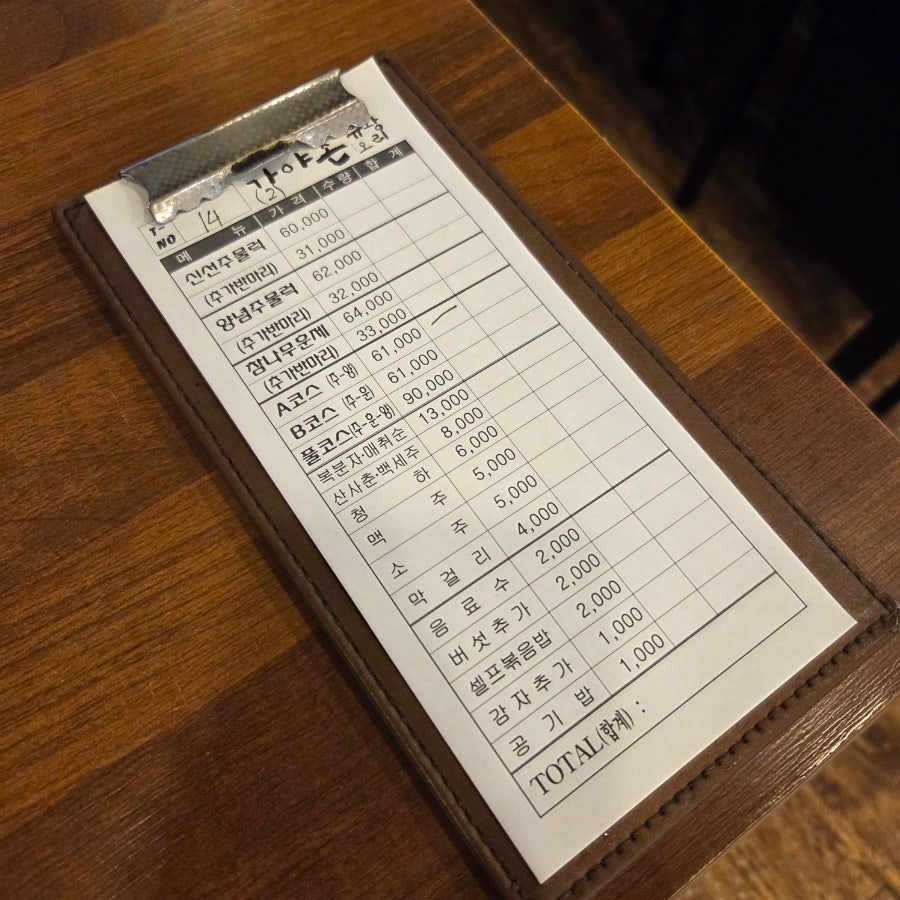 가야촌 유황 오리
T- NO 14 (2)
메 뉴 가 격 수 량 합 계
신선주물럭 60,000
(추가반마리) 31,000
양념주물럭 62,000
(추가반마리) 32,000
참나무훈제 64,000
(추가반마리) 33,000
A코스 (주-양) 61,000 —
B코스 (주-훈) 61,000
풀코스(주-훈-양) 90,000
복분자·매취순 13,000
산사춘·백세주 8,000
청 하 6,000
맥 주 5,000
소 주 5,000
막 걸 리 4,000
음 료 수 2,000
버 섯 추 가 2,000
셀프볶음밥 2,000
감 자 추 가 1,000
공 기 밥 1,000
TOTAL(합계) :